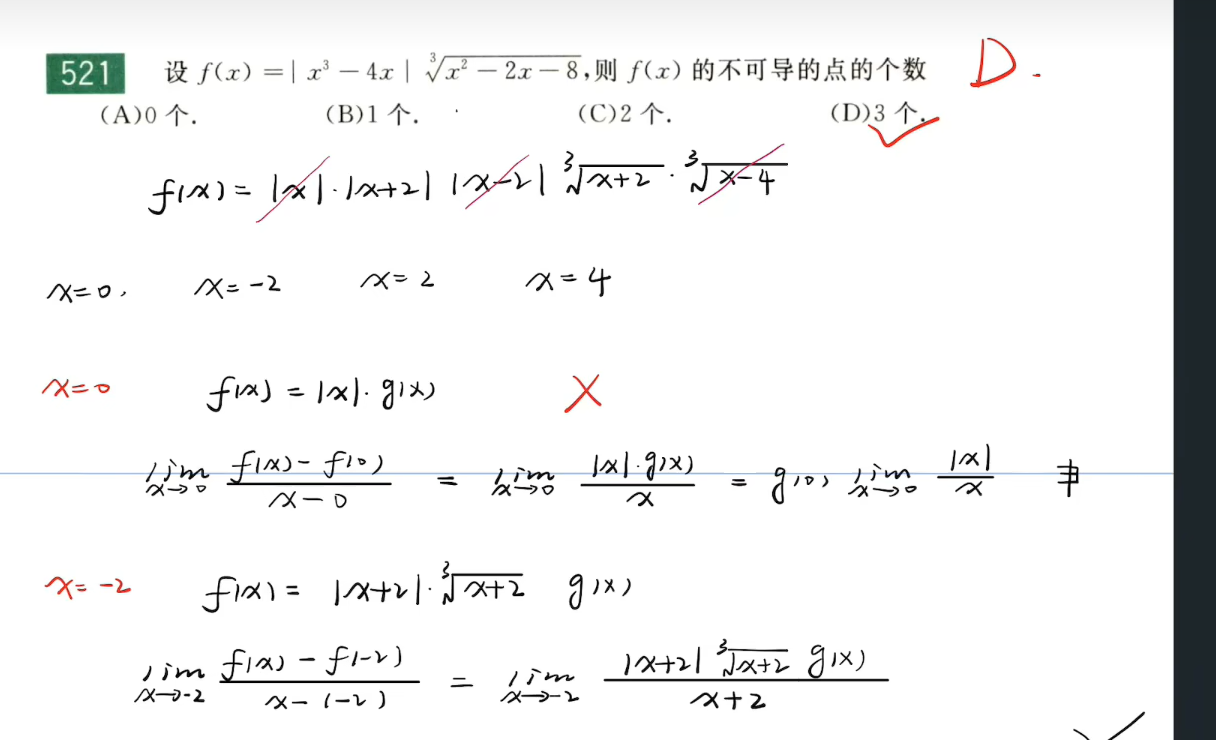 521 设 f(x) = | x³ − 4x | ∛(x² − 2x − 8),则 f(x) 的不可导的点的个数 D.
(A)0 个. (B)1 个. (C)2 个. (D)3 个.
f(x) = |x|·|x+2| |x−2| ∛(x+2) · ∛(x−4)
x=0, x=−2 x=2 x=4
x=0 f(x) = |x|·g(x) X
lim x→0 (f(x)−f(0))/(x−0) = lim x→0 (|x|·g(x))/x = g(0) lim x→0 |x|/x ∄
x=−2 f(x) = |x+2|·∛(x+2) g(x)
lim x→−2 (f(x)−f(−2))/(x−(−2)) = lim x→−2 (|x+2| ∛(x+2) g(x))/(x+2)